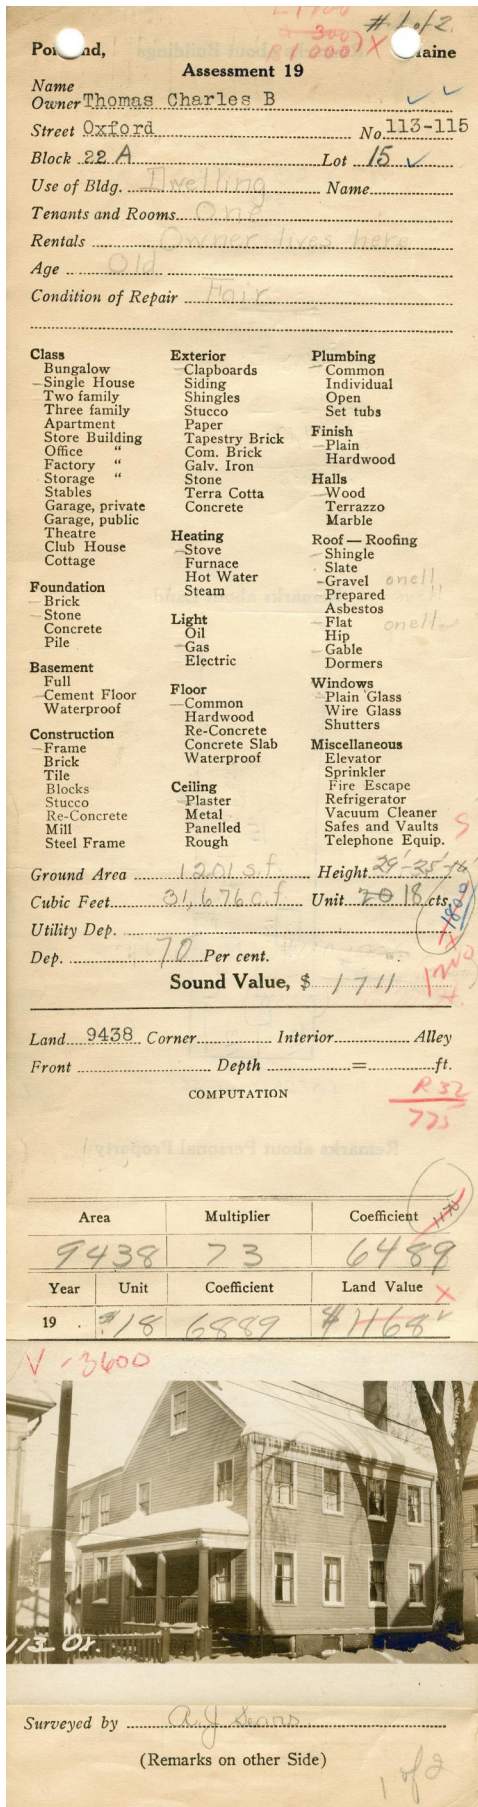 L 1700
# 1 of 2.
300
Portland, R 1000 X Maine
Assessment 19
Name
Owner Thomas Charles B
Street Oxford No. 113-115
Block 22 A Lot 15
Use of Bldg. Dwelling Name
Tenants and Rooms One
Rentals Owner lives here
Age Old
Condition of Repair Fair
Class
Bungalow
Single House
Two family
Three family
Apartment
Store Building
Office "
Factory "
Storage "
Stables
Garage, private
Garage, public
Theatre
Club House
Cottage
Foundation
Brick
Stone
Concrete
Pile
Basement
Full
Cement Floor
Waterproof
Construction
Frame
Brick
Tile
Blocks
Stucco
Re-Concrete
Mill
Steel Frame
Exterior
Clapboards
Siding
Shingles
Stucco
Paper
Tapestry Brick
Com. Brick
Galv. Iron
Stone
Terra Cotta
Concrete
Heating
Stove
Furnace
Hot Water
Steam
Light
Oil
Gas
Electric
Floor
Common
Hardwood
Re-Concrete
Concrete Slab
Waterproof
Ceiling
Plaster
Metal
Panelled
Rough
Plumbing
Common
Individual
Open
Set tubs
Finish
Plain
Hardwood
Halls
Wood
Terrazzo
Marble
Roof — Roofing
Shingle
Slate
Gravel one ll
Prepared
Asbestos
Flat one ll
Hip
Gable
Dormers
Windows
Plain Glass
Wire Glass
Shutters
Miscellaneous
Elevator
Sprinkler
Fire Escape
Refrigerator
Vacuum Cleaner
Safes and Vaults
Telephone Equip.
Ground Area 1201 s.f. Height 29'-25'
Cubic Feet 31,676 c.f. Unit 20 18 cts.
1800
Utility Dep.
Dep. 70 Per cent.
Sound Value, $ 1711
Land 9438 Corner Interior Alley
Front Depth = ft.
COMPUTATION
R 32
775
Area Multiplier Coefficient
9438 73 6489
Year Unit Coefficient Land Value X
19 $.18 6889 $1168
N -3600
113 Ox.
Surveyed by A. J. Sears
(Remarks on other Side)
1 of 2